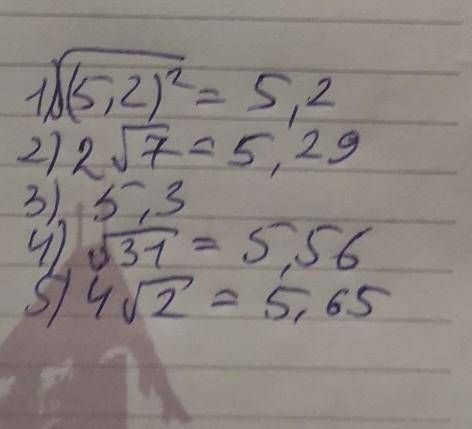 1) √(5,2)² = 5,2
2) 2√7 = 5,29
3) 5,3
4) √31 = 5,56
5) 4√2 = 5,65